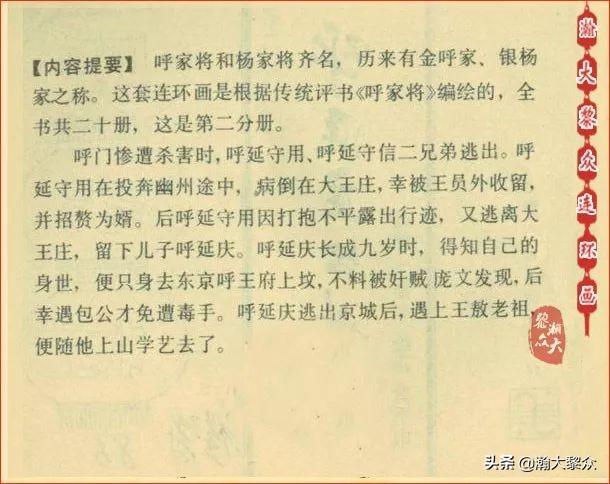 【内容提要】 呼家将和杨家将齐名，历来有金呼家、银杨
家之称。这套连环画是根据传统评书《呼家将》编绘的，全
书共二十册，这是第二分册。
呼门惨遭杀害时，呼延守用、呼延守信二兄弟逃出。呼
延守用在投奔幽州途中，病倒在大王庄，幸被王员外收留，
并招赘为婿。后呼延守用因打抱不平露出行迹，又逃离大
王庄，留下儿子呼延庆。呼延庆长成九岁时，得知自己的
身世，便只身去东京呼王府上坟，不料被奸贼庞文发现，后
幸遇包公才免遭毒手。呼延庆逃出京城后，遇上王敖老祖，
便随他上山学艺去了。
瀚大黎众连环画
瀚大黎众
头条 @瀚大黎众